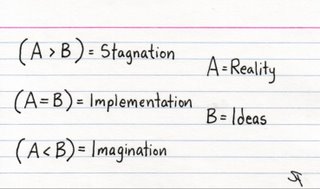 (A > B) = Stagnation
(A = B) = Implementation
(A < B) = Imagination
A = Reality
B = Ideas